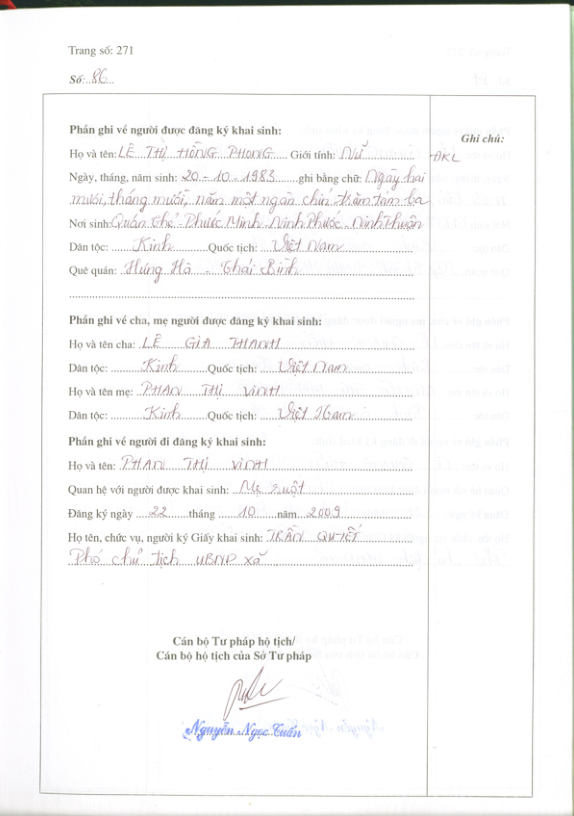 Trang số: 271
Số: 86
Phần ghi về người được đăng ký khai sinh:
Ghi chú:
Họ và tên: LÊ THỊ HỒNG PHONG Giới tính: Nữ
ĐKL
Ngày, tháng, năm sinh: 20-10-1983 ghi bằng chữ: Ngày hai
mươi, tháng mười, năm một ngàn chín trăm tám ba
Nơi sinh: Quán Thẻ - Phước Minh - Ninh Phước - Ninh Thuận
Dân tộc: Kinh Quốc tịch: Việt Nam
Quê quán: Hưng Hà - Thái Bình
Phần ghi về cha, mẹ người được đăng ký khai sinh:
Họ và tên cha: LÊ GIA THANH
Dân tộc: Kinh Quốc tịch: Việt Nam
Họ và tên mẹ: PHAN THỊ VINH
Dân tộc: Kinh Quốc tịch: Việt Nam
Phần ghi về người đi đăng ký khai sinh:
Họ và tên: PHAN THỊ VINH
Quan hệ với người được khai sinh: Mẹ ruột
Đăng ký ngày 22 tháng 10 năm 2009
Họ tên, chức vụ, người ký Giấy khai sinh: TRẦN QUYẾT
Phó chủ tịch UBND xã
Cán bộ Tư pháp hộ tịch/
Cán bộ hộ tịch của Sở Tư pháp
Nguyễn Ngọc Tuấn